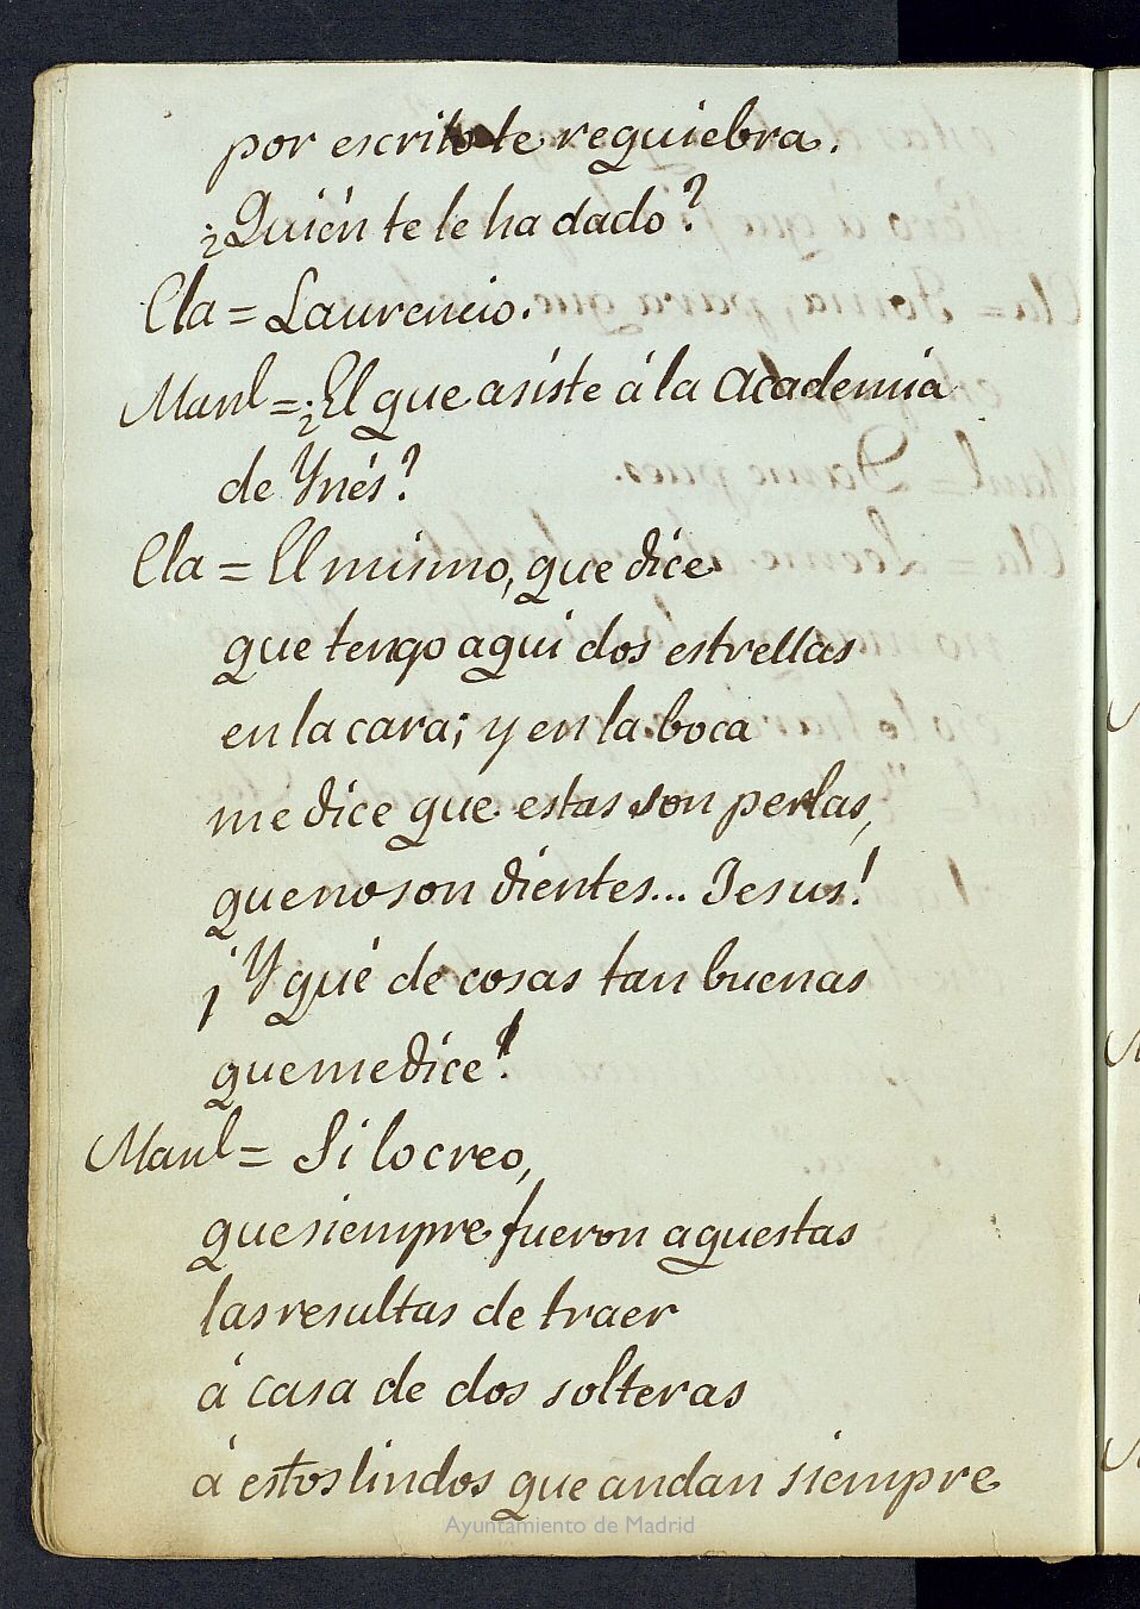 por escrito te requiebra.
¿Quién te le ha dado?
Cla = Laurencio.
Manl = ¿El que asiste á la Academia
de Ynés?
Cla = El mismo, que dice
que tengo aqui dos estrellas
en la cara; y en la boca
me dice que estas son perlas,
que no son dientes... Jesus!
¡Y qué de cosas tan buenas
que me dice!
Manl = Si lo creo,
que siempre fueron aquestas
las resultas de traer
á casa de dos solteras
á estos lindos que andan siempre
Ayuntamiento de Madrid